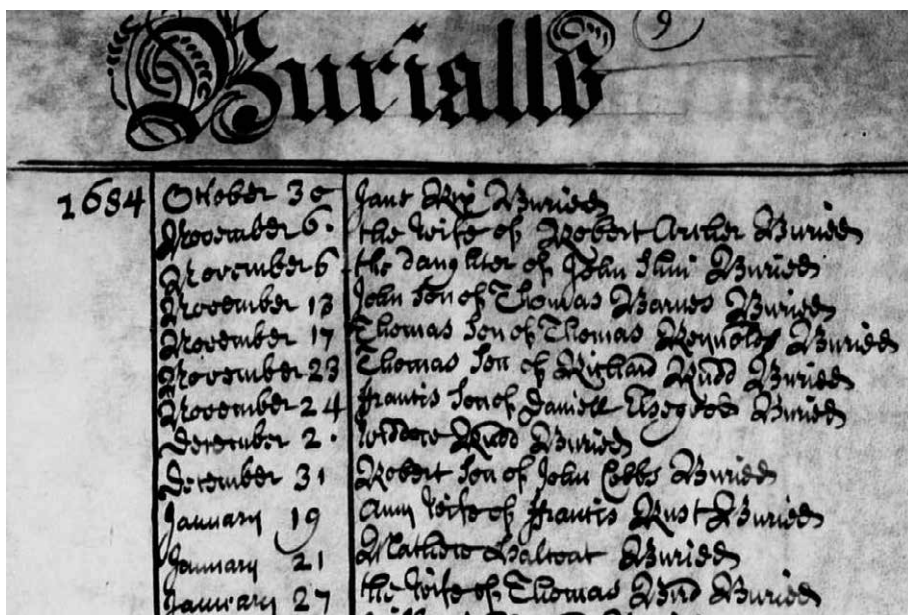 Burialls 9
1684 October 30 Jane Rix Buried
November 6. the wife of Robert Archer Buried
November 6 the daughter of John Buried
November 13 John son of Thomas Barnes Buried
November 17 Thomas son of Thomas Reynolds Buried
November 23 Thomas son of Richard Rudd Buried
November 24 francis son of Daniell Buried
December 2. widdow Rudd Buried
December 31 Robert son of John Cobbs Buried
January 19 Ann wife of francis Rust Buried
January 21 Mathew Buried
January 27 the wife of Thomas Buried